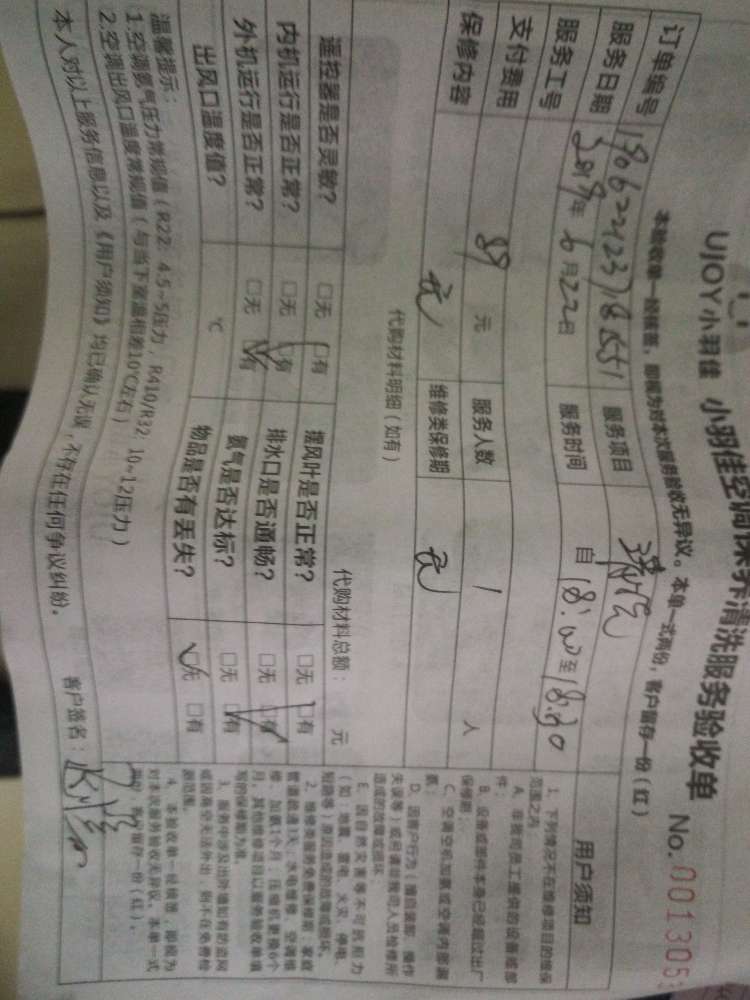 UJOY小羽佳 小羽佳空调保养清洗服务验收单
No.001305
本验收单一经核签，即视为对本次服务验收无异议。本单一式两份，客户留存一份（红）
订单编号 服务项目 清洗
服务日期 2019年6月22日 服务时间 自18:00至18:30
服务工号
支付费用 89元 服务人数 1人
保修内容 无 维修类保修期 无
代购材料明细（如有）
代购材料总额： 元
遥控器是否灵敏？ □无 □有 摆风叶是否正常？ □无 □有
内机运行是否正常？ □无 □有 排水口是否通畅？ □无 □有
外机运行是否正常？ □无 □有 氨气是否达标？ □无 □有
出风口温度值？ ℃ 物品是否有丢失？ □无 □有
温馨提示：
1.空调氨气压力常规值（R22: 4.5~5压力，R410/R32 10~12压力）
2.空调出风口温度常规值（与当下室温相差10℃左右）
本人对以上服务信息以及《用户须知》均已确认无误，不存在任何争议纠纷。
客户签名：
用户须知
1、下列情况不在维修项目的维保
范围之内：
A、非我司员工提供的设备或部
件；
B、设备或部件本身已经超过出厂
保修期；
C、空调空机加氨或空调内部漏
氨；
D、因客户行为（擅自装卸、操作
失误等）或另请非我司人员检修所
造成的故障或损坏；
E、因自然灾害等不可抗阻力
（如：地震、雷电、火灾、停电、
短路等）原因造成的故障或损坏。
2、维修类服务免费保修期：家政
管道疏通3天；水电维修、空调维
修、加氨1个月；压缩机更换6个
月，其他维修项目以服务验收单填
写的保修期为准。
3、服务中涉及出外墙如有防盗网
或因高空无法外出，则不在免费检
测范围。
4、本验收单一经核签，即视为
对本次服务验收无异议。本单一式
两份，客户留存一份（红）。